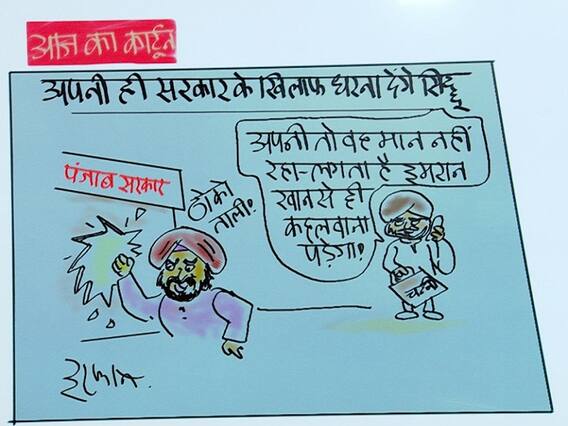 आज का कार्टून
अपनी ही सरकार के खिलाफ धरना देंगे सिद्धू
अपनी तो वह मान नहीं
रहा-लगता है इमरान
खान से ही
कहलवाना
पड़ेगा!
पंजाब सरकार
ठोको
ताली!
चन्नी
इरफान